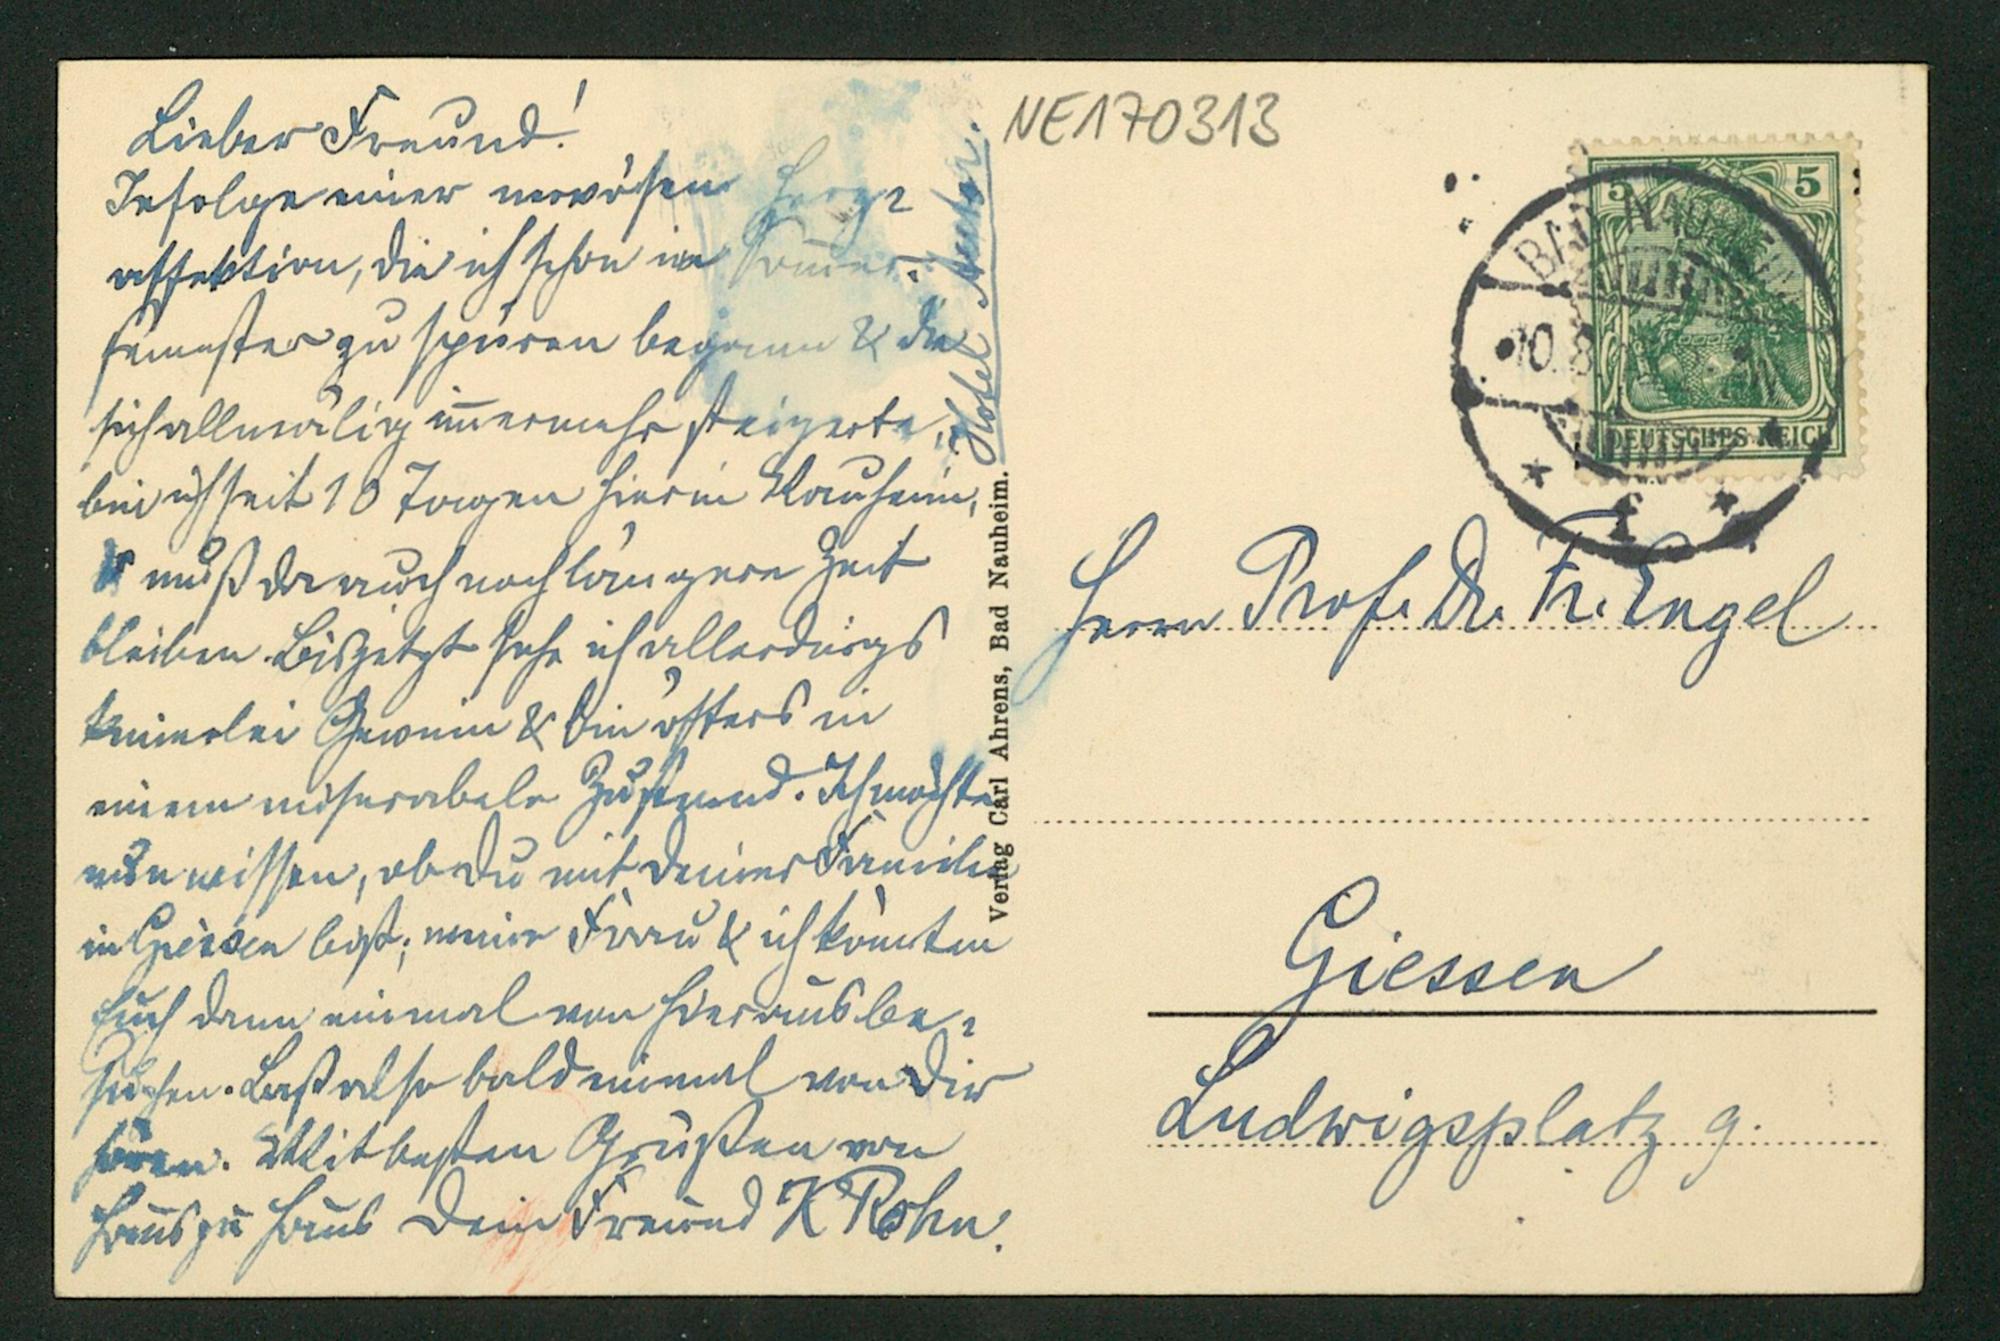 Lieber Freund!
Infolge einer nervösen Herz-
affektion, die ich schon im Sommer-
semester zu spüren begann & die
sich allmälig immermehr steigerte,
bin ich seit 10 Tagen hier in Nauheim,
muß da auch noch längere Zeit
bleiben. Bis jetzt sehe ich allerdings
keinerlei Gewinn & bin öfters in
einem miserabeln Zustand. Ich möchte
nun wissen, ob Du mit Deiner Familie
in Giessen bist; meine Frau & ich könnten
Euch dann einmal von hier aus be-
suchen. Laß also bald einmal von Dir
hören. Mit besten Grüßen von
Haus zu Haus Dein Freund K Rohn.
Hotel
Verlag Carl Ahrens, Bad Nauheim.
NE170313
5 5
DEUTSCHES REICH
BAD NAUHEIM
10.8
* f *
Herrn Prof. Dr. Fr. Engel
Giessen
Ludwigsplatz 9.